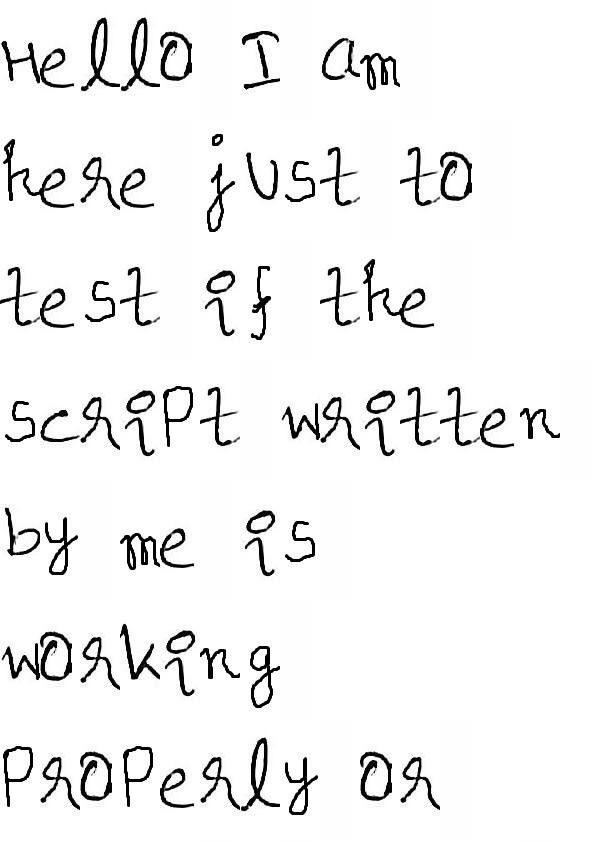 Hello I am
here just to
test if the
script written
by me is
working
properly or